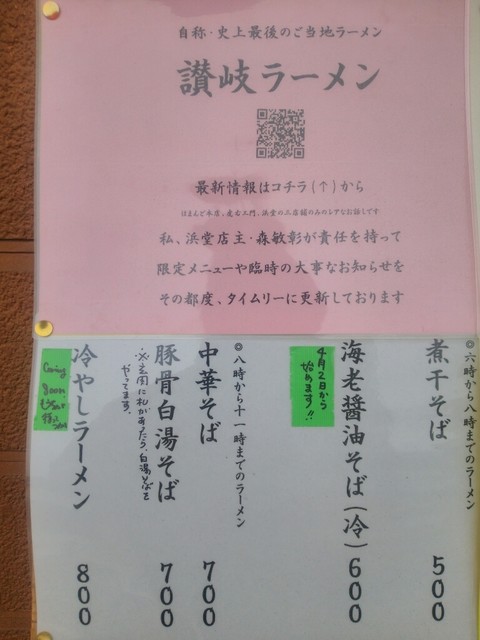 自称・史上最後のご当地ラーメン
讃岐ラーメン
最新情報はコチラ(↑)から
はまんど本店、麦右エ門、浜堂の三店舗のみのレアなお話しです
私、浜堂店主・森敏彰が責任を持って
限定メニューや臨時の大事なお知らせを
その都度、タイムリーに更新しております
◎六時から八時までのラーメン
煮干そば 500
海老醤油そば(冷) 600
4月2日から
始めます!!
◎八時から十一時までのラーメン
中華そば 700
豚骨白湯そば 700
※玄関に札があったら、白湯そばを
やってます。
冷やしラーメン 800
Coming
soon